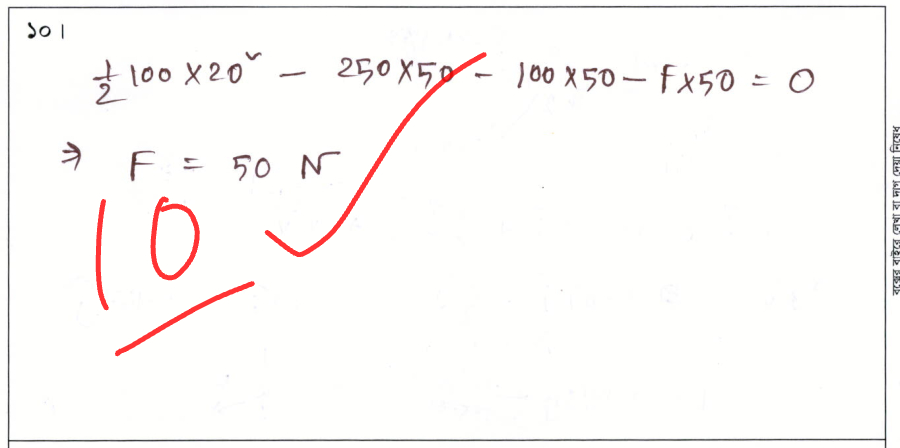 ১০।
½ 100 × 20² - 250 × 50 - 100 × 50 - F × 50 = 0
⇒ F = 50 N
10
বক্সের বাইরে লেখা বা দাগ দেয়া নিষেধ